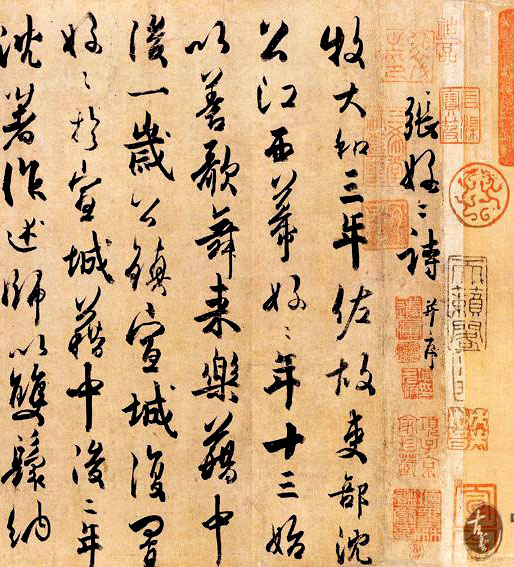 張好〻詩并序
牧大和三年佐故吏部沈
公江西幕好〻年十三始
以善歌舞來樂籍中
後一歲公鎮宣城復置
好〻於宣城籍中後二年
沈著作述師以雙鬟納
天籟閣
項子京家珍藏